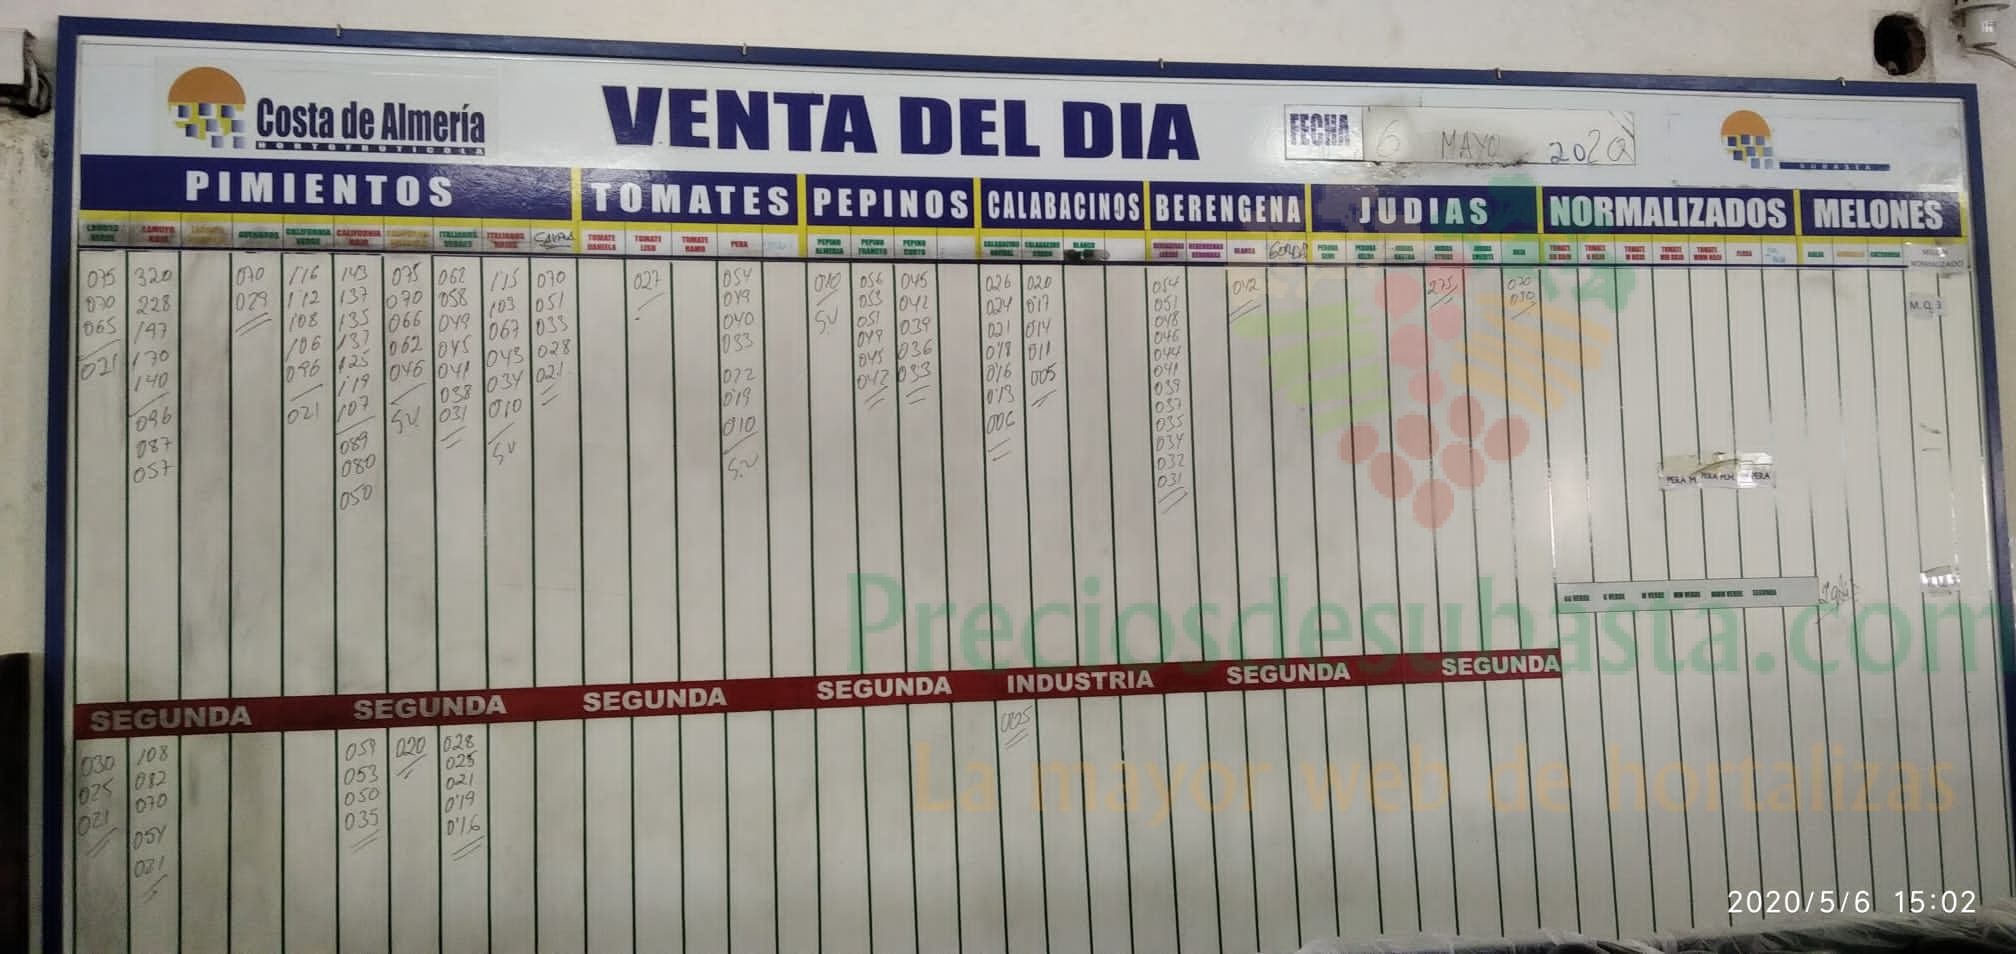 Costa de Almería
HORTOFRUTICOLA
VENTA DEL DIA
FECHA 6 MAYO 2020
SUBASTA
PIMIENTOS TOMATES PEPINOS CALABACINOS BERENGENA JUDIAS NORMALIZADOS MELONES
LAMUYO VERDE LAMUYO ROJO CALIFORNIA VERDE CALIFORNIA ROJO ITALIANOS VERDES TOMATE DANIELA TOMATE LISO TOMATE RAMO PERA PEPINO ALMERIA PEPINO FRANCES PEPINO CORTO BLANCO BLANCA GORDA
075 320 070 116 143 075 062 115 070 027 054 010 056 045 026 020 054 012 275 070
070 228 029 112 137 070 058 103 051 049 SV 053 042 024 017 051 030
065 147 108 135 066 049 067 033 040 051 039 021 014 048
021 170 106 137 062 045 043 028 033 049 036 018 011 046
140 096 125 046 041 034 021 022 045 033 016 005 044
096 021 119 SV 038 010 019 042 013 041
087 107 031 SV 010 006 039
057 089 SV 037
080 035
050 034
032
031
M.Q.3
PERA M PERA PERA
GG VERDE G VERDE M VERDE MM VERDE MMM VERDE SEGUNDA
SEGUNDA SEGUNDA SEGUNDA SEGUNDA INDUSTRIA SEGUNDA SEGUNDA
030 108 059 020 028 005
025 082 053 025
021 070 050 021
054 035 019
021 016
Preciosdesubasta.com
La mayor web de hortalizas
2020/5/6 15:02